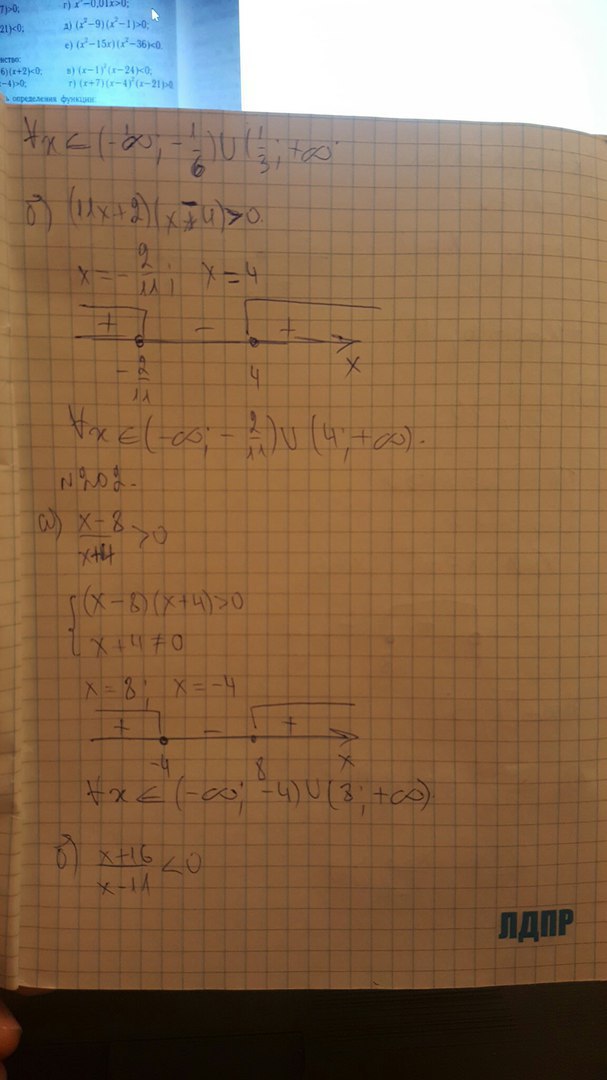 7)>0;
г) x²−0,01x>0;
21)<0;
д) (x²−9)(x²−1)>0;
е) (x²−15x)(x²−36)<0.
нство:
6)(x+2)<0;
в) (x−1)²(x−24)<0;
x−4)>0;
г) (x+7)(x−4)²(x−21)>0
ь определения функции:
∀x ∈ (−∞; −1/6) ∪ (1/3; +∞
б) (11x+2)(x−4)>0.
x = −2/11; x = 4
+ − +
−2/11 4 x
∀x ∈ (−∞; −2/11) ∪ (4; +∞).
№202.
а) x−8/x+4 >0
{(x−8)(x+4)>0
x+4≠0
x = 8; x = −4
+ − +
−4 8 x
∀x ∈ (−∞; −4) ∪ (8; +∞).
б) x+16/x−11 <0
ЛДПР